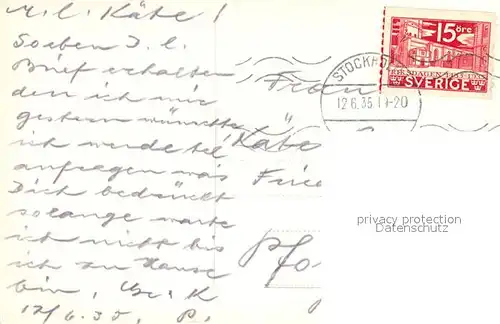 M. l. Käte!
Soeben D. l.
Brief erhalten
den ich mir
gestern wünschte
ich werde tel
anfragen was
Dich bedrückt
solange warte
ich nicht bis
ich zu Hause
bin.
12/6.35. P.
Frau
Käte
Pfo
15 ÖRE
RIKSDAGEN 1435 1935
SVERIGE
STOCKHO
12.6.35 19-20
privacy protection
Datenschutz